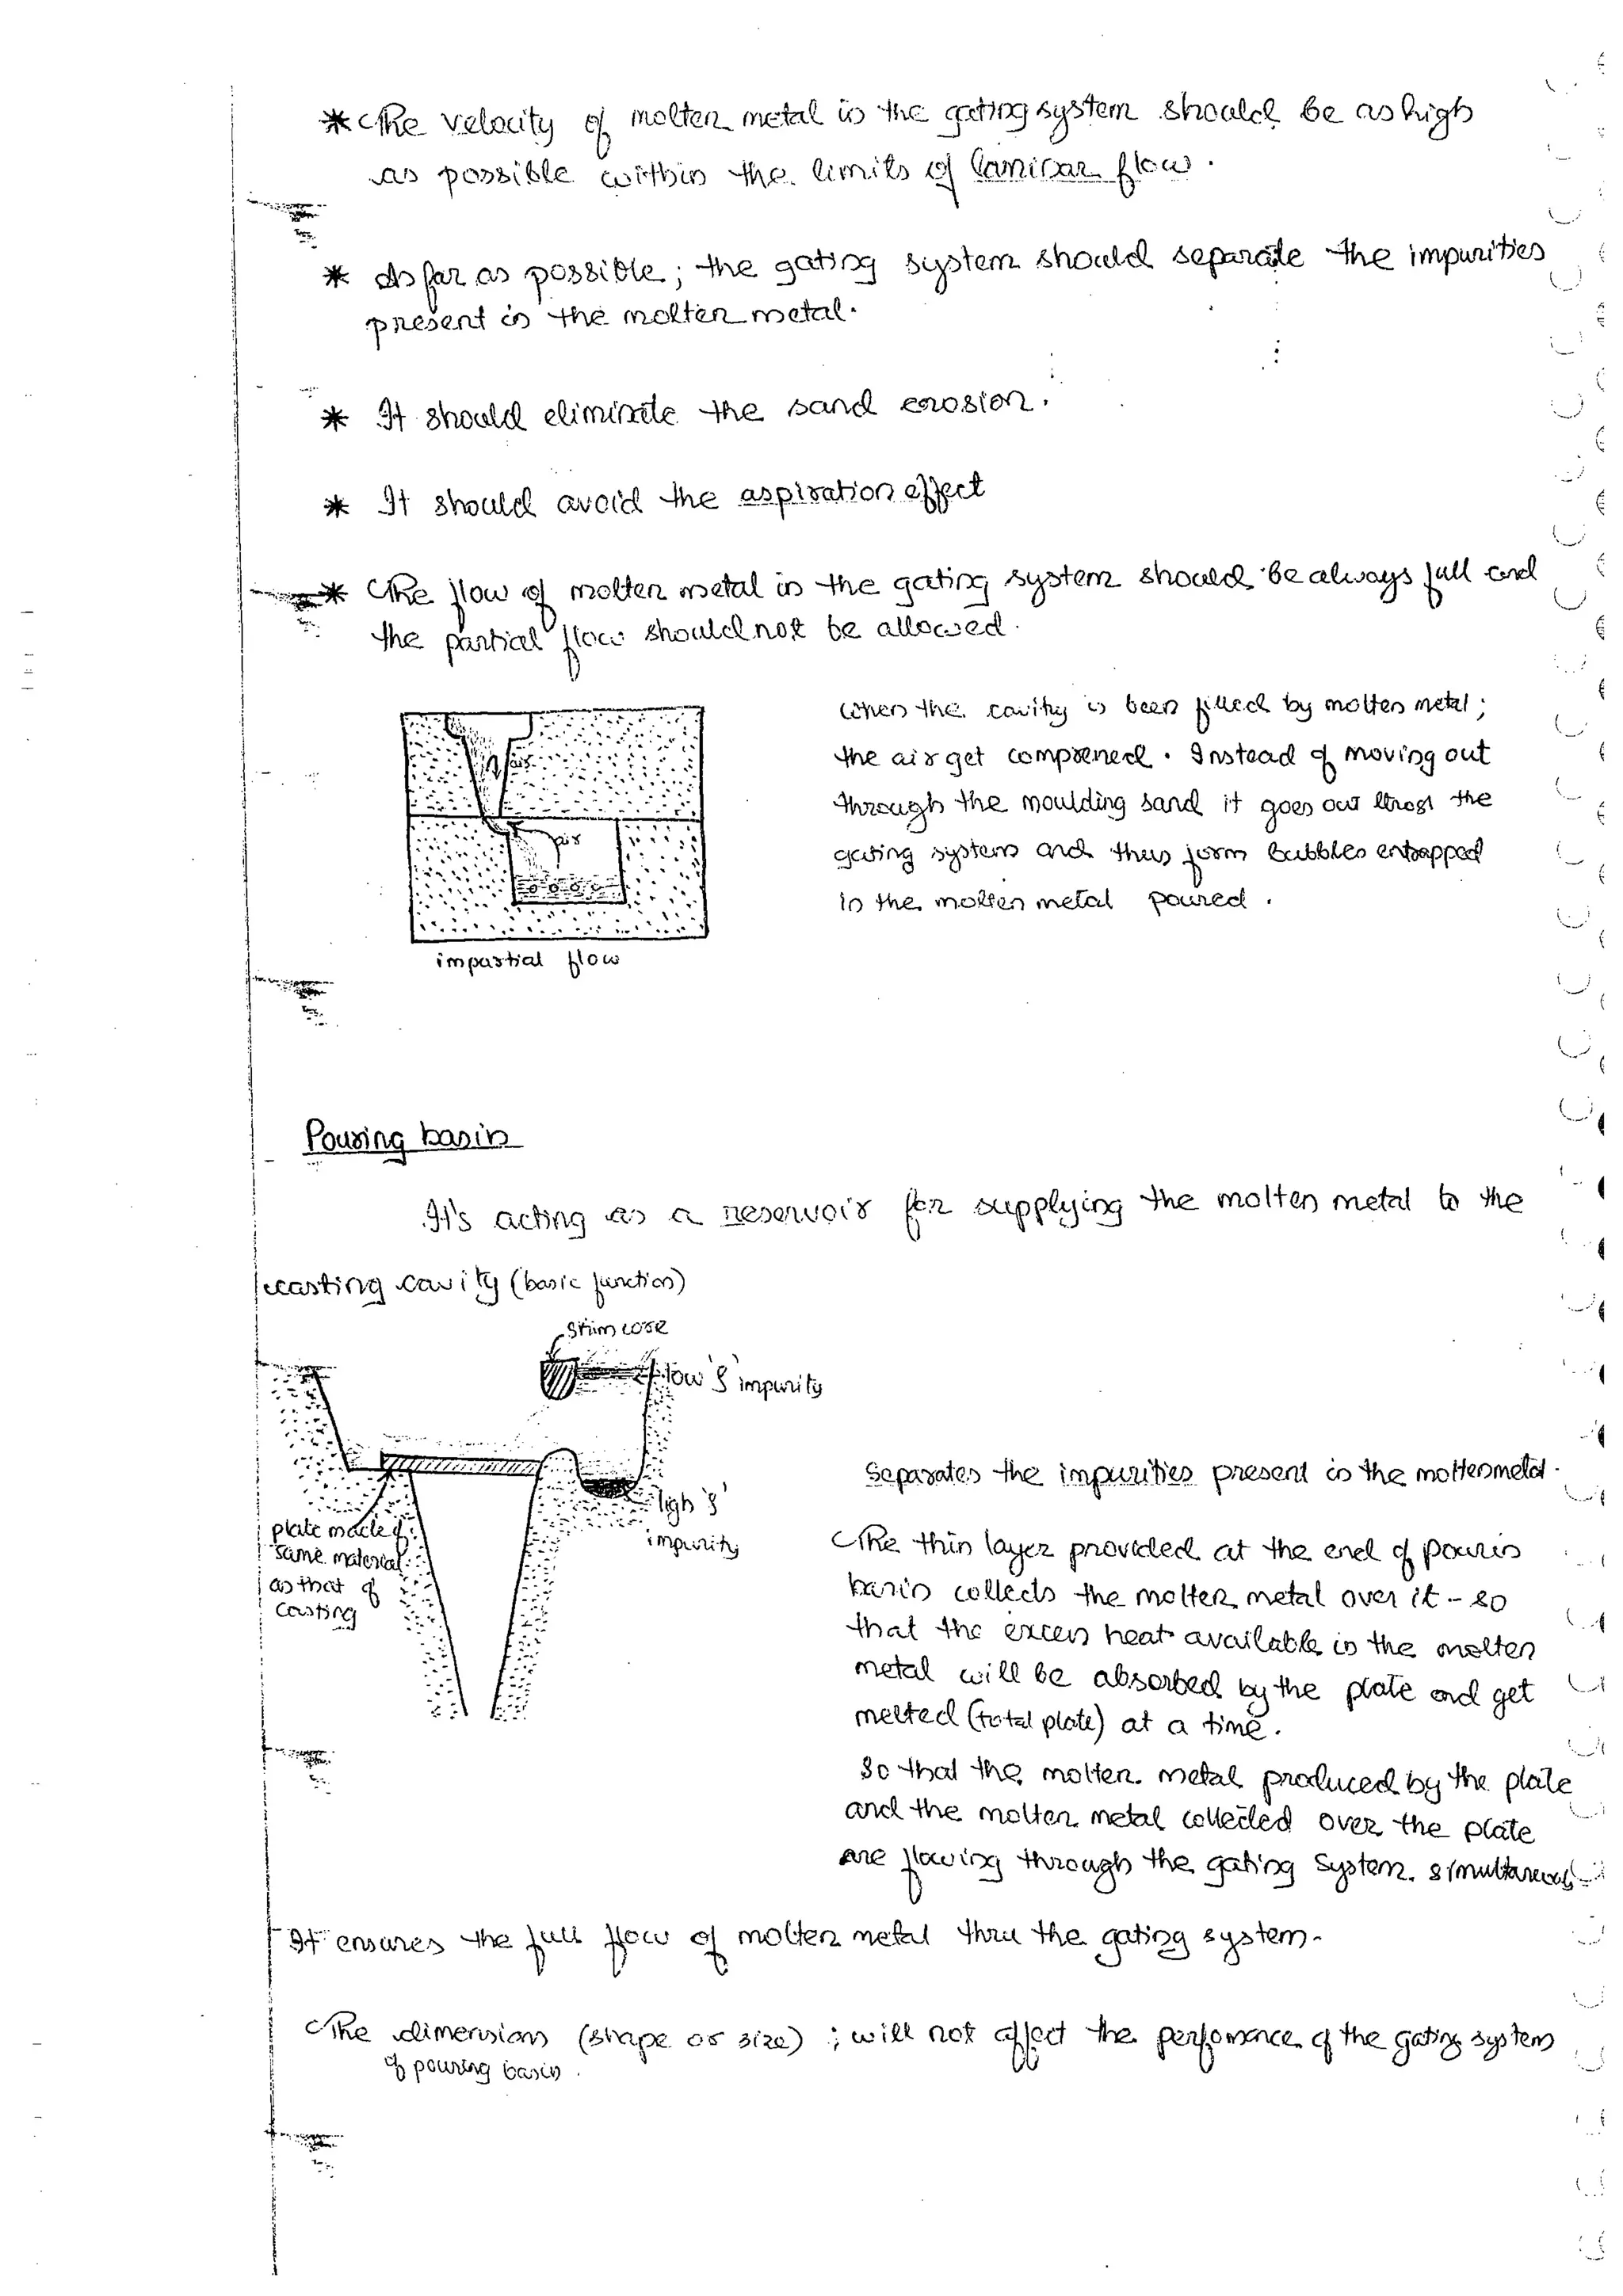 * The velocity of molten metal in the gating system should be as high
as possible within the limits of laminar flow.
* As far as possible; the gating system should separate the impurities
present in the molten metal.
* It should eliminate the sand erosion.
* It should avoid the aspiration effect
* The flow of molten metal in the gating system should be always full and
the partial flow should not be allowed.
air
air
impartial flow
When the cavity is been filled by molten metal;
the air get compressed. Instead of moving out
through the moulding sand it goes out the
gating system and thus form bubbles entrapped
in the molten metal poured.
Pouring basin
It's acting as a reservoir for supplying the molten metal to the
casting cavity (basic function)
low 'ρ' impurity
high 'ρ'
impurity
plate made of
same material
as that of
casting
Separates the impurities present in the molten metal.
The thin layer provided at the end of
basin collects the molten metal over it - so
that the excess heat available in the molten
metal will be absorbed by the plate and get
melted (total plate) at a time.
So that the molten metal produced by the plate
and the molten metal collected over the plate
are flowing through the gating system.
It ensures the full flow of molten metal thru the gating system.
The dimensions (shape or size) ; will not affect the performance of the gating system
of pouring basin.